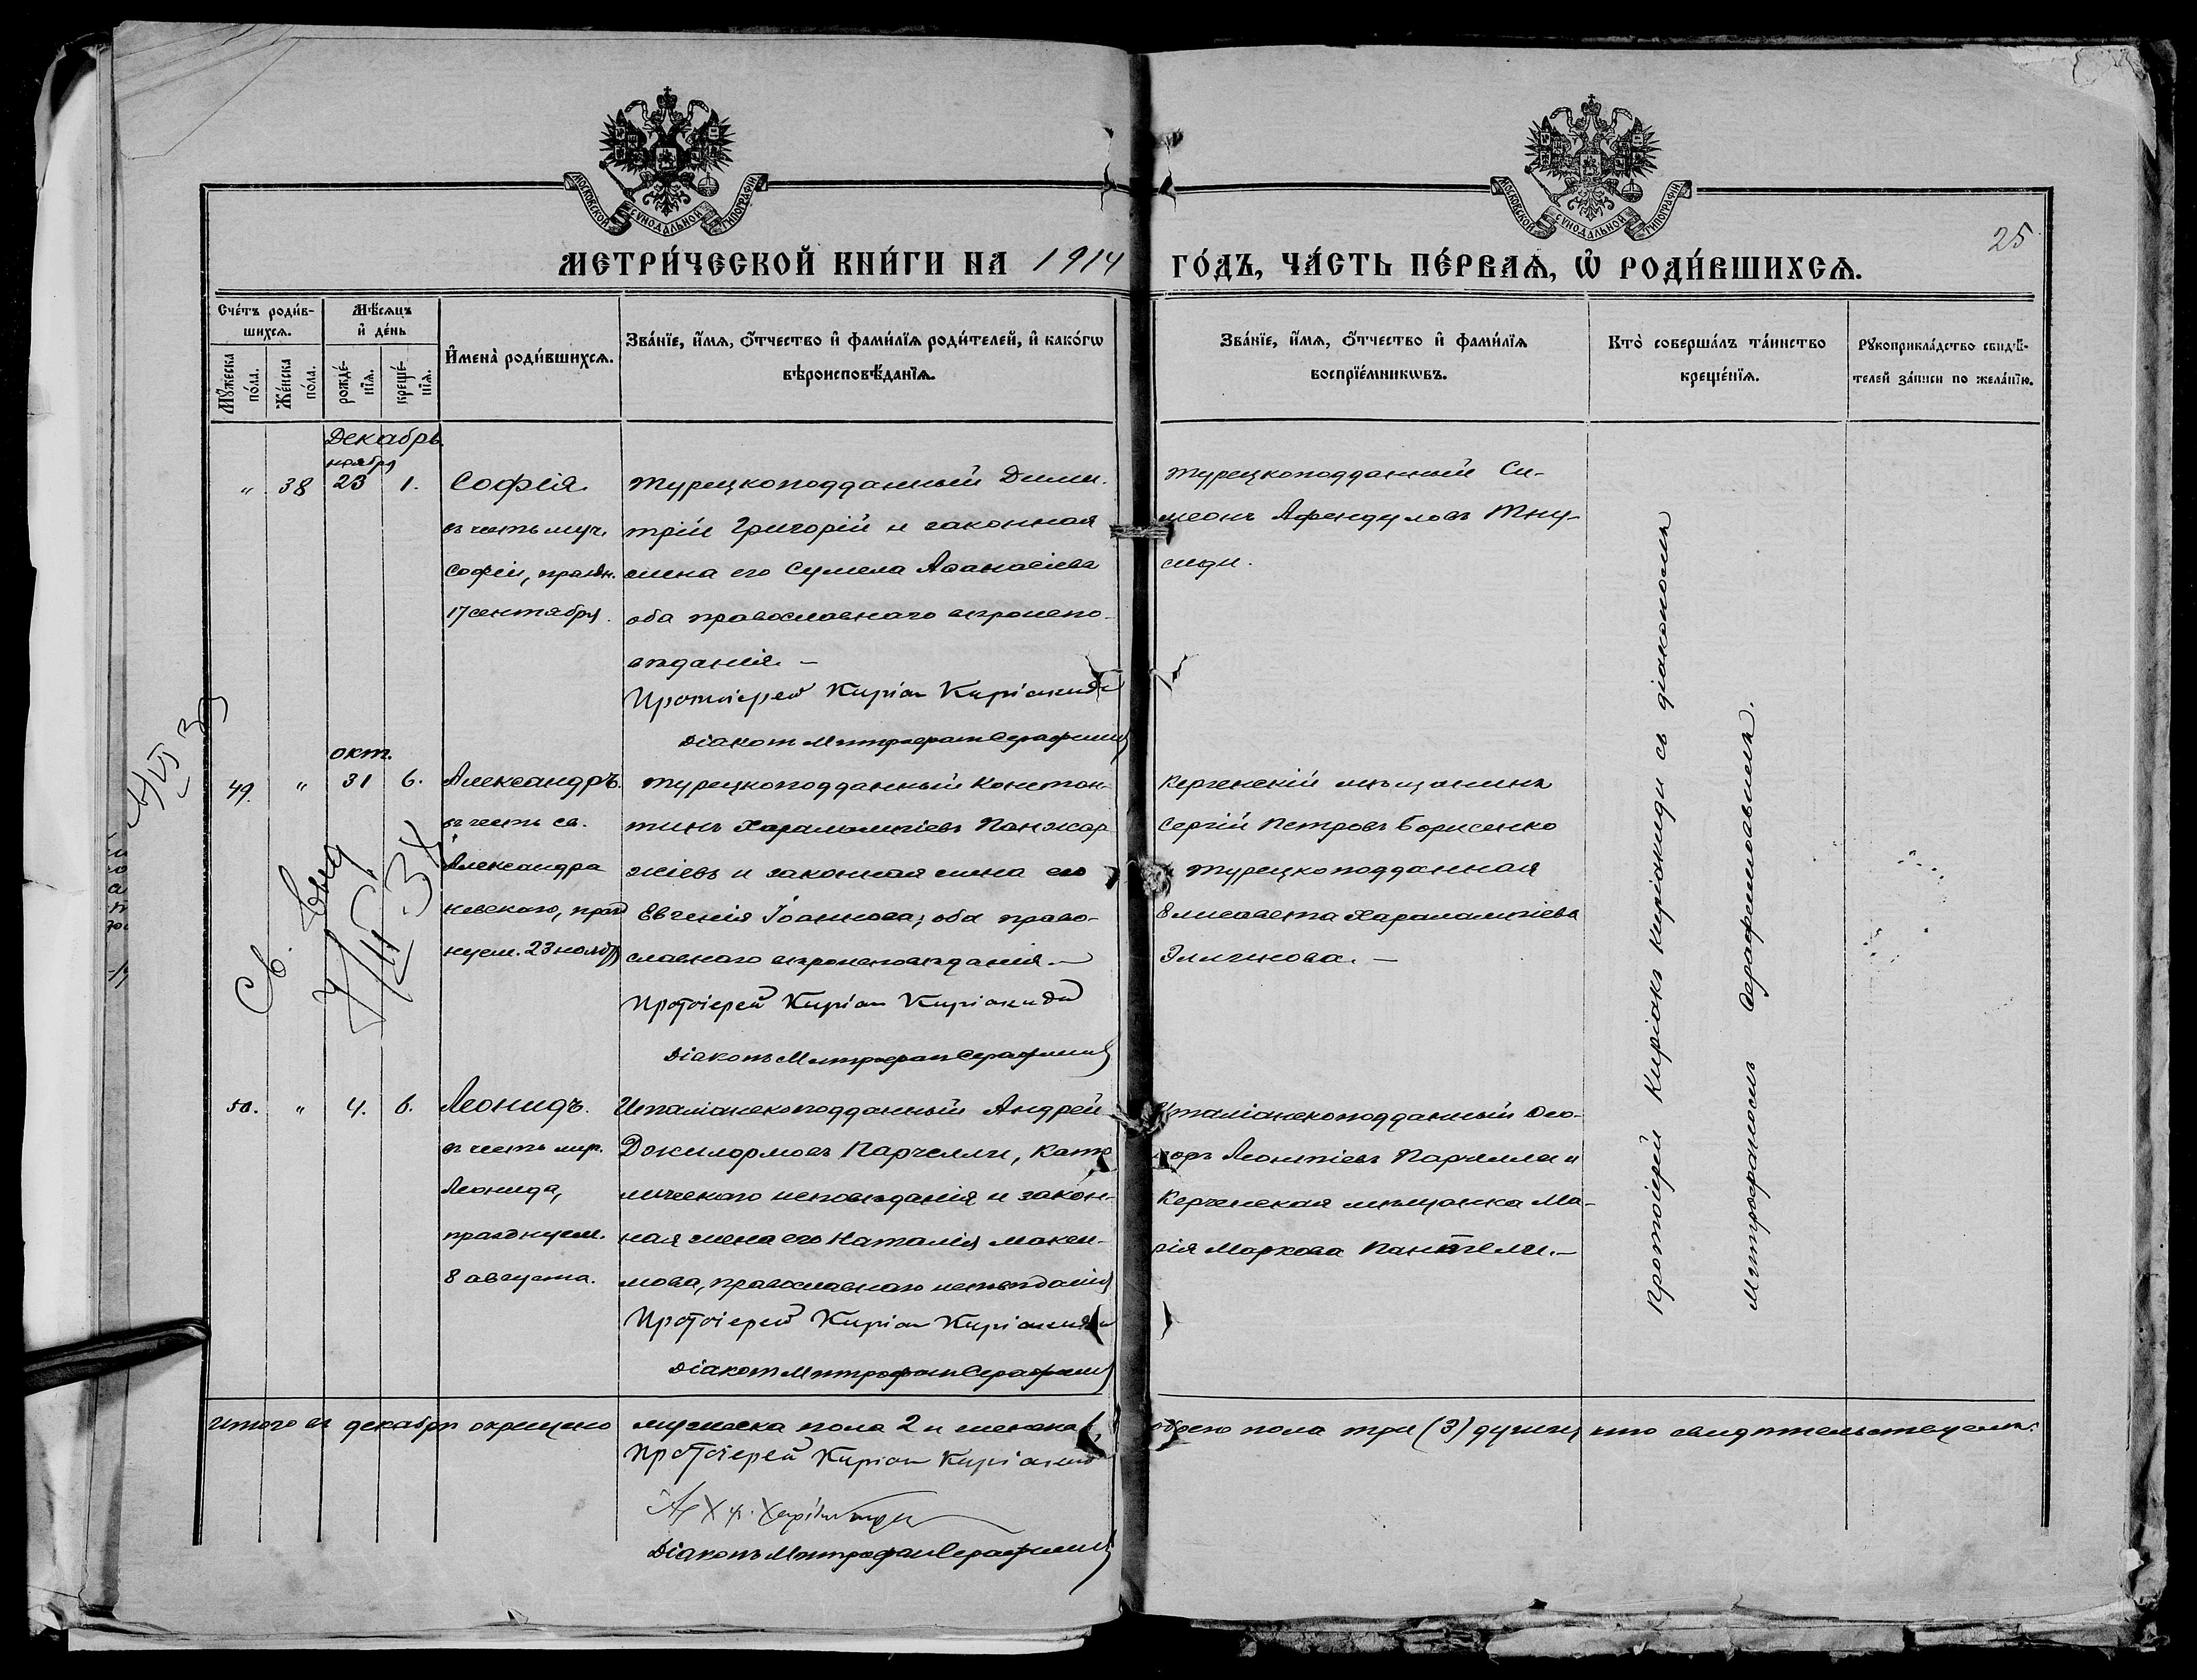 МОСКОВСКОЙ СѴНОДАЛЬНОЙ ТИПОГРАФІИ
МОСКОВСКОЙ СѴНОДАЛЬНОЙ ТИПОГРАФІИ
25
МЕТРИ́ЧЕСКОЙ КНИ́ГИ НА 1914 ГО́ДЪ, ЧА́СТЬ ПЕ́РВАѦ, Ѡ҆ РОДИ́ВШИХСѦ.
Сче́тъ роди́в-
шихсѧ.
Мꙋ́жеска
по́ла.
Же́нска
по́ла.
Мѣ́сѧцъ
и҆ де́нь
рожде́-
нїѧ.
креще́-
нїѧ.
И҆мена̀ роди́вшихсѧ.
Зва́нїе, и҆́мѧ, ѻ҆́тчество и҆ фами́лїѧ роди́телей, и҆ како́гѡ
вѣроисповѣ́данїѧ.
Зва́нїе, и҆́мѧ, ѻ҆́тчество и҆ фами́лїѧ
воспрїе́мникѡвъ.
Кто̀ соверша́лъ та́инство
креще́нїѧ.
Рꙋкоприкла́дство свидѣ́-
телей за́писи по жела́нїю.
Декабрь.
ноября
" 38 23 1.
Софія.
въ честь муч.
Софіи, праздн.
17 сентября.
Турецкоподданный Дими-
трій Григорій и законная
жена его Сумела Аѳанасіева
оба православнаго вѣроиспо-
вѣданія. –
Протоіерей Киріак Киріакиди
Діаконъ Митрофанъ Серафимов
Турецкоподданный Си-
меонъ Афендуловъ
окт.
49. " 31 6.
Александръ.
въ честь св.
Александра
Невскаго, празд
нуем. 23 ноября
Турецкоподданный Констан-
тинъ Харалампіевъ Панжар
жіевъ и законная жена его
Евгенія Іоаннова; оба право-
славнаго вѣроисповѣданія. –
Протоіерей Киріак Киріакиди
Діаконъ Митрофанъ Серафимов
Керченскій мѣщанинъ
Сергій Петровъ Борисенко
и турецкоподданная
Елисавета Харалампіева
Эличнова. –
Св.
50. " 4. 6.
Леонидъ.
въ честь муч.
Леонида,
празднуем.
8 августа.
Италіанскоподданный Андрей
Парчелли, като
лическаго исповѣданія и закон-
ная жена его Наталія Макси-
мова, православнаго исповѣданія
Протоіерей Киріак Киріакиди
Діаконъ Митрофанъ Серафимов
Италіанскоподданный Ѳео-
доръ Леонтіевъ Парчелли и
Керченская мѣщанка Ма-
рія Маркова Пантелли. –
Протоіерей Киріакъ Киріакиди съ діакономъ
Митрофаномъ Серафимовымъ.
Итого въ декабрѣ окрещено мужеска пола 2 и женска 1, обоего пола три (3) души, что свидѣтельствуемъ:
Протоіерей Киріак Киріакиди
Діаконъ Митрофанъ Серафимов